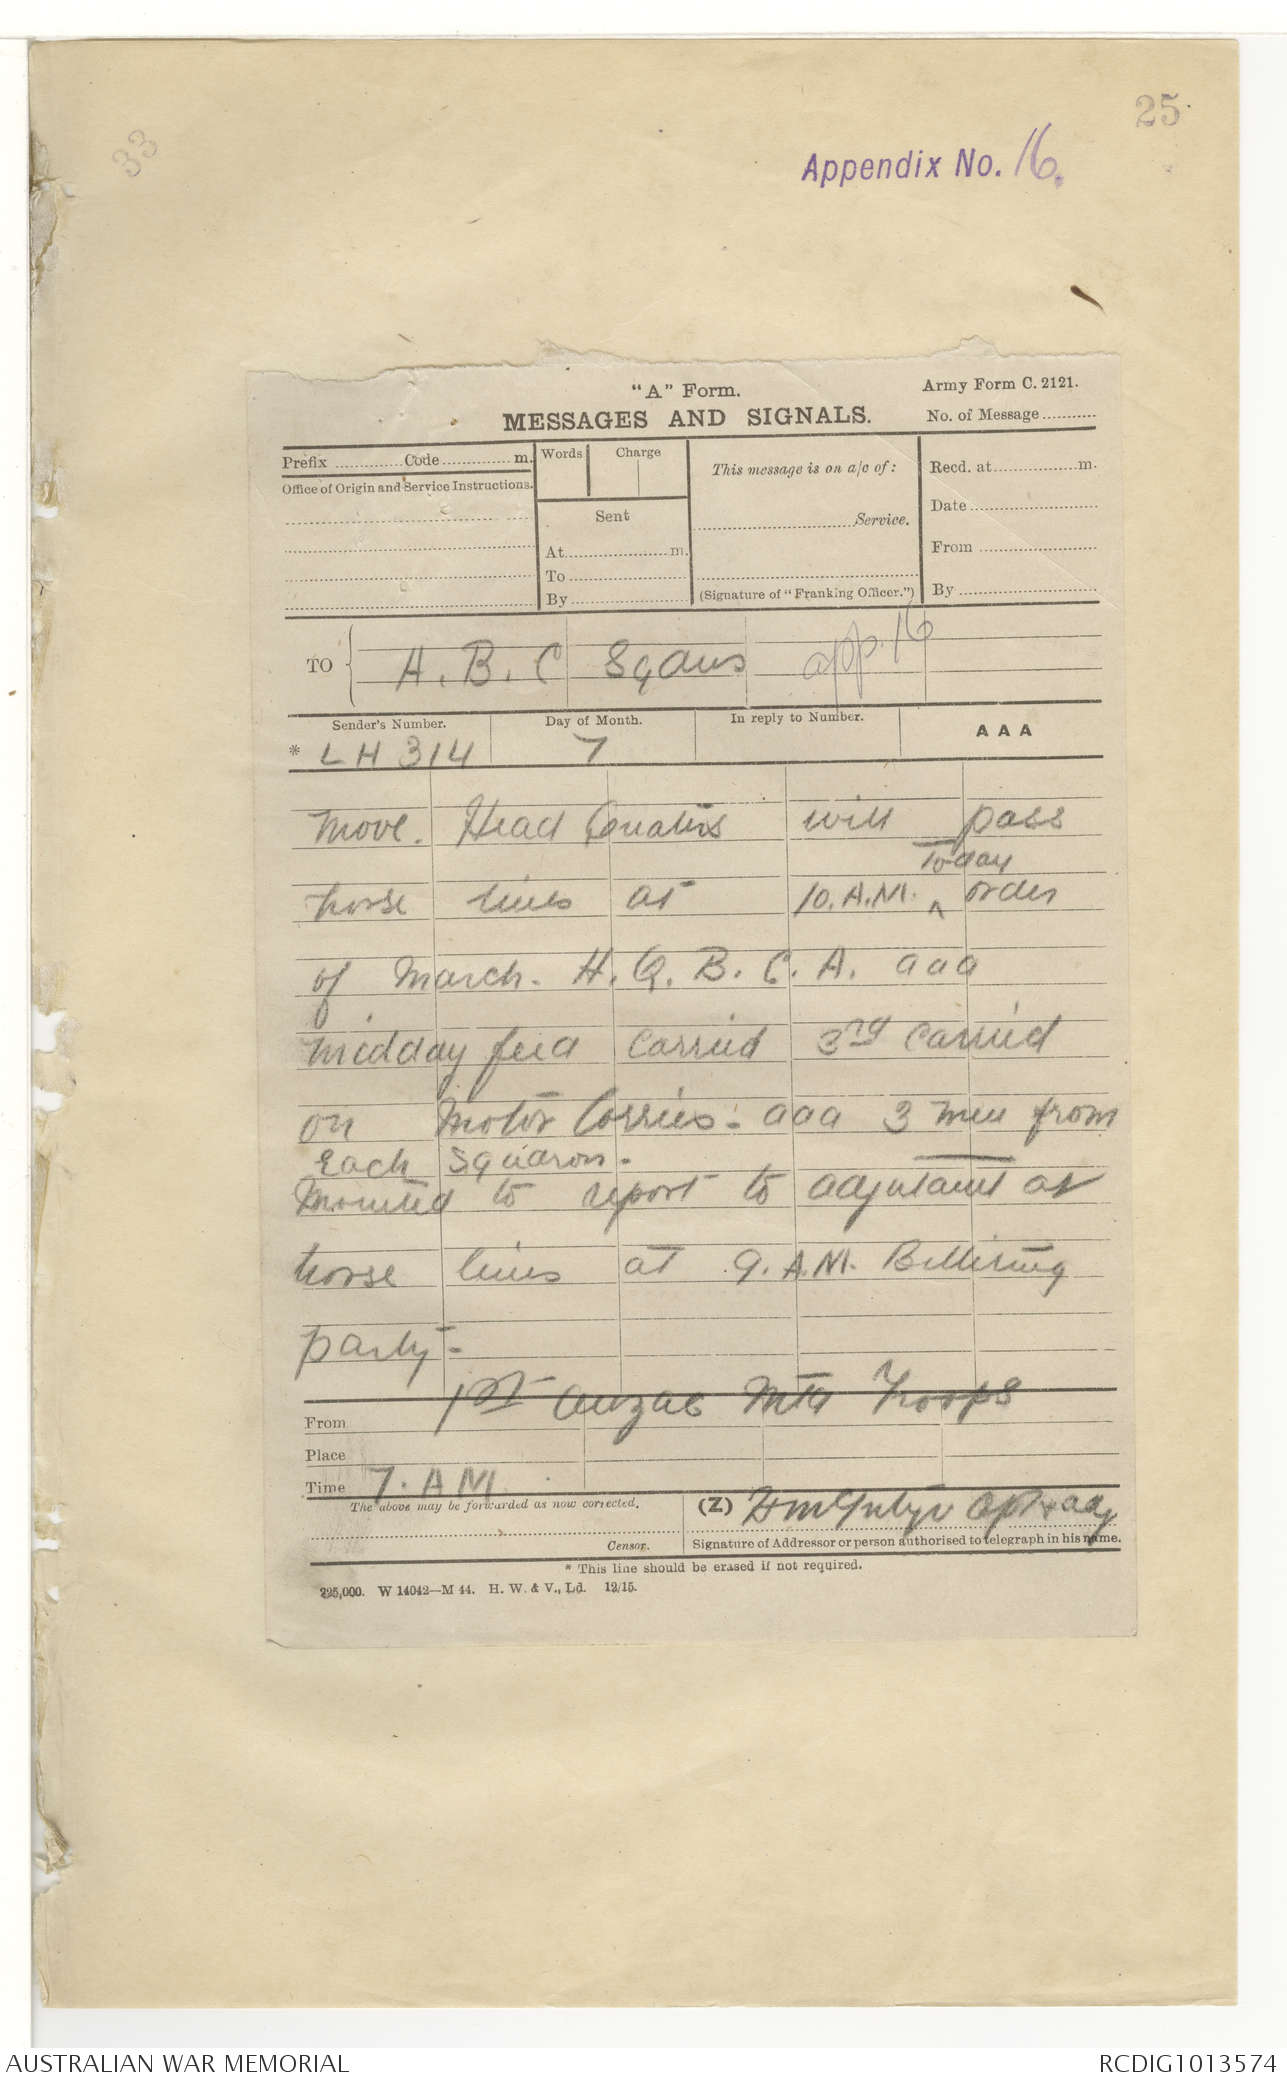 25
33
Appendix No. 16.
"A" Form.
Army Form C. 2121.
MESSAGES AND SIGNALS.
No. of Message
Prefix Code m.
Words Charge
This message is on a/c of:
Recd. at m.
Office of Origin and Service Instructions.
Sent
Service.
Date
At m.
From
To
By
(Signature of "Franking Officer.")
By
TO
A. B. C Sqdns app. 16
Sender's Number.
Day of Month.
In reply to Number.
AAA
* LH 314 7
Move. Head Quarters will pass
horse lines at 10. A.M. ^ today order
of march. H. Q. B. C. A. aaa
midday feed carried 3rd carried
on motor lorries. aaa 3 men from
each squadron.
mounted to report to adjutant at
horse lines at 9. A.M. Billeting
party.
From 1st Anzac Mtd Troops
Place
Time 7. A M.
The above may be forwarded as now corrected.
(Z) Capt & adj
Censor.
Signature of Addressor or person authorised to telegraph in his name.
* This line should be erased if not required.
225,000. W 14042—M 44. H. W. & V., Ld. 12/15.
AUSTRALIAN WAR MEMORIAL
RCDIG1013574